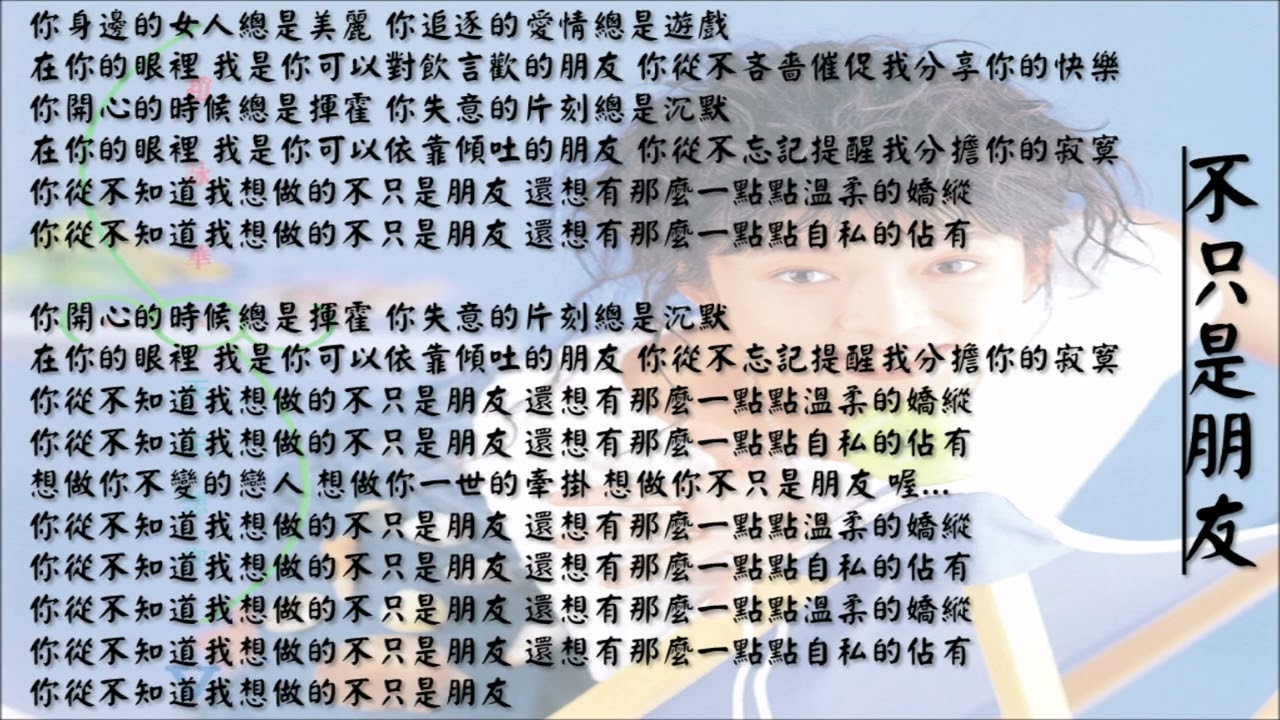 你身邊的女人總是美麗 你追逐的愛情總是遊戲
在你的眼裡 我是你可以對飲言歡的朋友 你從不吝嗇催促我分享你的快樂
你開心的時候總是揮霍 你失意的片刻總是沉默
在你的眼裡 我是你可以依靠傾吐的朋友 你從不忘記提醒我分擔你的寂寞
你從不知道我想做的不只是朋友 還想有那麼一點點溫柔的嬌縱
你從不知道我想做的不只是朋友 還想有那麼一點點自私的佔有
你開心的時候總是揮霍 你失意的片刻總是沉默
在你的眼裡 我是你可以依靠傾吐的朋友 你從不忘記提醒我分擔你的寂寞
你從不知道我想做的不只是朋友 還想有那麼一點點溫柔的嬌縱
你從不知道我想做的不只是朋友 還想有那麼一點點自私的佔有
想做你不變的戀人 想做你一世的牽掛 想做你不只是朋友 喔...
你從不知道我想做的不只是朋友 還想有那麼一點點溫柔的嬌縱
你從不知道我想做的不只是朋友 還想有那麼一點點自私的佔有
你從不知道我想做的不只是朋友 還想有那麼一點點溫柔的嬌縱
你從不知道我想做的不只是朋友 還想有那麼一點點自私的佔有
你從不知道我想做的不只是朋友
不只是朋友